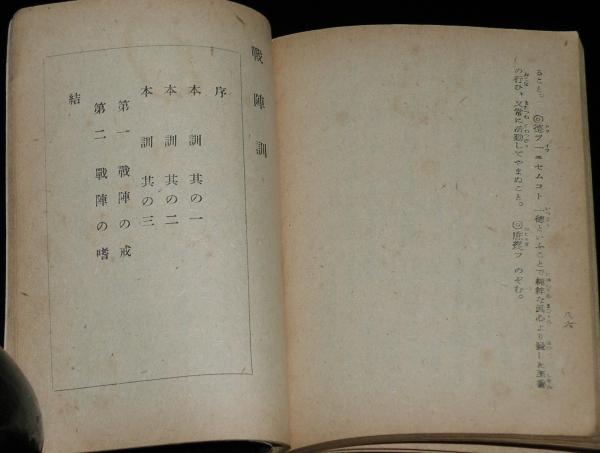 ること。 ◎德ヲ一ニセムコト 一德といふことで純粹な眞心より發した至善
の行ひ、又常に活動してやまぬこと。 ◎庶幾フ のぞむ。
八六
戰陣訓
序
本訓 其の一
本訓 其の二
本訓 其の三
第一 戰陣の戒
第二 戰陣の嗜
結